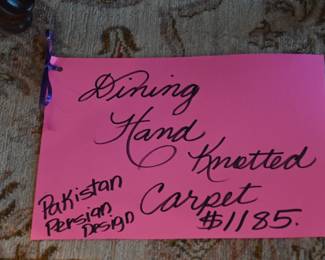 Dining
Hand
Knotted
Carpet
$1185.
Pakistan
Persian
Design